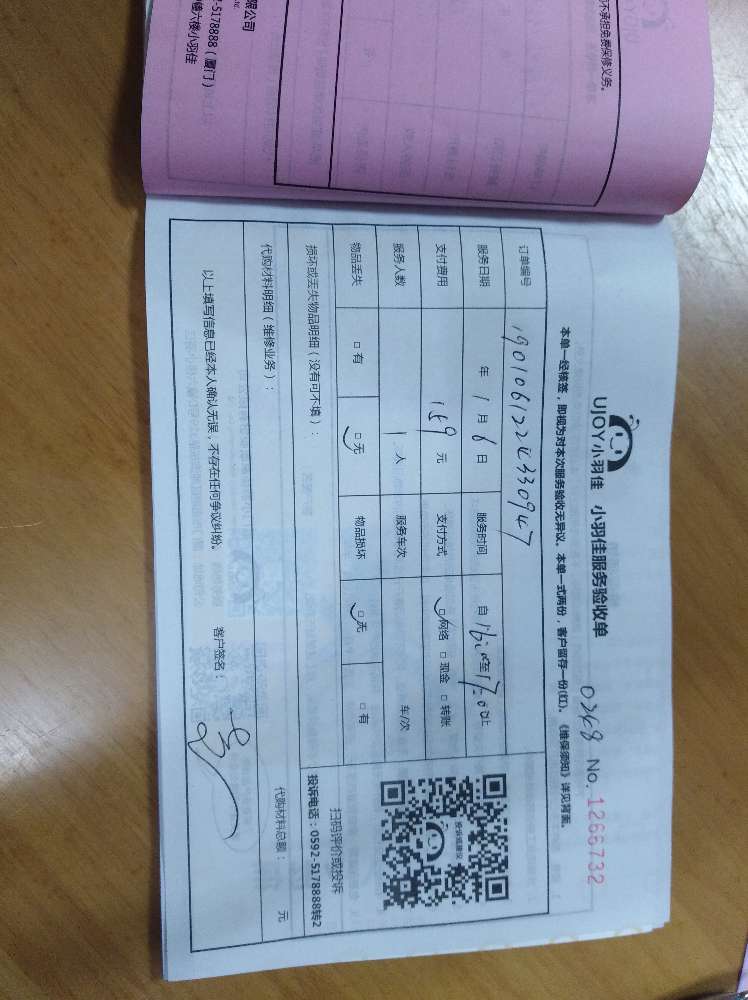 不承担免费保修义务。
限公司
-5178888（厦门）
德六楼小羽佳
UJOY小羽佳 小羽佳服务验收单
0268 No. 1266732
本单一经核签，即视为对本次服务验收无异议。本单一式两份，客户留存一份(红)。《维保须知》详见背面。
订单编号 1901061224330947
服务日期 年 1 月 6 日 服务时间 自 16:00 至 17:00 止
支付费用 159 元 支付方式 □网络 □现金 □转账
服务人数 1 人 服务车次 车/次
物品丢失 □有 □无 物品损坏 □无 □有
投诉或建议
扫码评价或投诉
投诉电话：0592-5178888转2
损坏或丢失物品明细（没有可不填）：
代购材料明细（维修业务）： 代购材料总额： 元
以上填写信息已经本人确认无误，不存在任何争议纠纷。
客户签名：